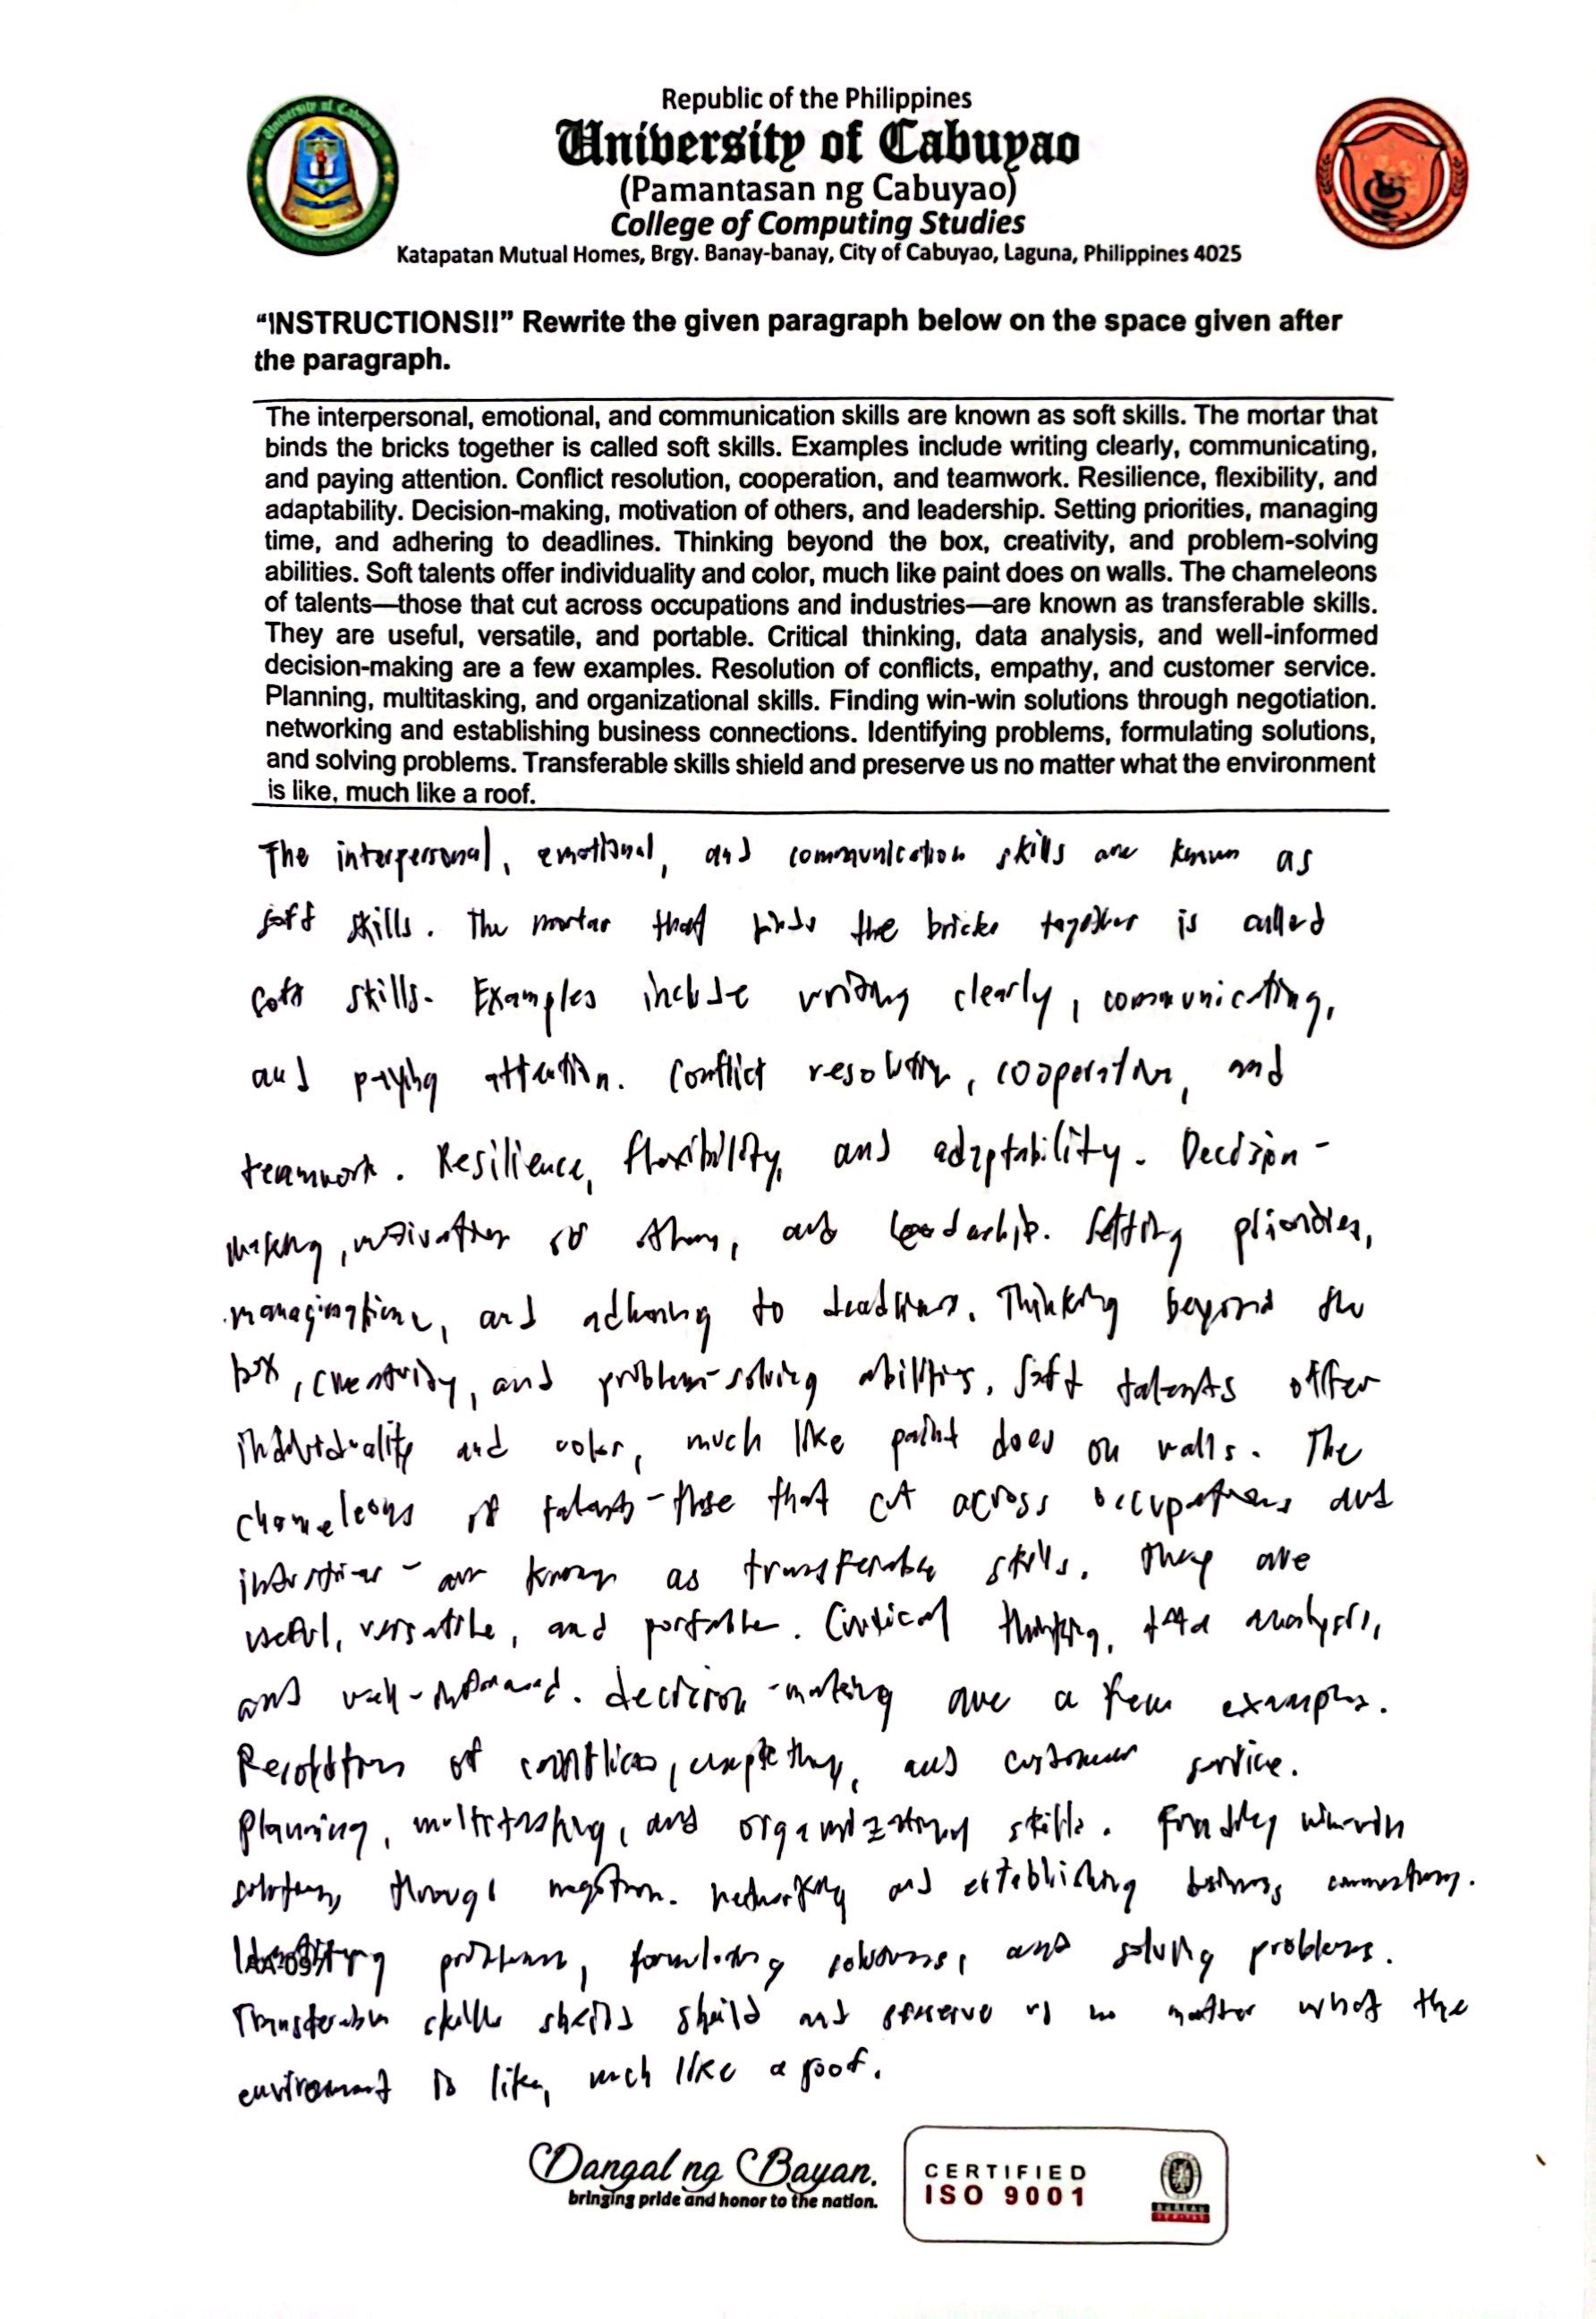 Republic of the Philippines
University of Cabuyao
(Pamantasan ng Cabuyao)
College of Computing Studies
Katapatan Mutual Homes, Brgy. Banay-banay, City of Cabuyao, Laguna, Philippines 4025
“INSTRUCTIONS!!” Rewrite the given paragraph below on the space given after
the paragraph.
The interpersonal, emotional, and communication skills are known as soft skills. The mortar that
binds the bricks together is called soft skills. Examples include writing clearly, communicating,
and paying attention. Conflict resolution, cooperation, and teamwork. Resilience, flexibility, and
adaptability. Decision-making, motivation of others, and leadership. Setting priorities, managing
time, and adhering to deadlines. Thinking beyond the box, creativity, and problem-solving
abilities. Soft talents offer individuality and color, much like paint does on walls. The chameleons
of talents—those that cut across occupations and industries—are known as transferable skills.
They are useful, versatile, and portable. Critical thinking, data analysis, and well-informed
decision-making are a few examples. Resolution of conflicts, empathy, and customer service.
Planning, multitasking, and organizational skills. Finding win-win solutions through negotiation.
networking and establishing business connections. Identifying problems, formulating solutions,
and solving problems. Transferable skills shield and preserve us no matter what the environment
is like, much like a roof.
The interpersonal, emotional, and communication skills are known as
soft skills. The mortar that binds the bricks together is called
soft skills. Examples include writing clearly, communicating,
and paying attention. Conflict resolution, cooperation, and
teamwork. Resilience, flexibility, and adaptability. Decision-
making, motivation of others, and leadership. Setting priorities,
managing time, and adhering to deadlines. Thinking beyond the
box, creativity, and problem-solving abilities. Soft talents offer
individuality and color, much like paint does on walls. The
chameleons of talents-those that cut across occupations and
industries - are known as transferable skills. They are
useful, versatile, and portable. Critical thinking, data analysis,
and well-informed. decision-making are a few examples.
Resolution of conflicts, empathy, and customer service.
Planning, multitasking, and organizational skills. Finding win-win
solutions through negotiation. networking and establishing business connections.
Identifying problems, formulating solutions, and solving problems.
Transferable skills shield and preserve us no matter what the
environment is like, much like a roof.
Dangal ng Bayan.
bringing pride and honor to the nation.
CERTIFIED
ISO 9001
BUREAU
VERITAS